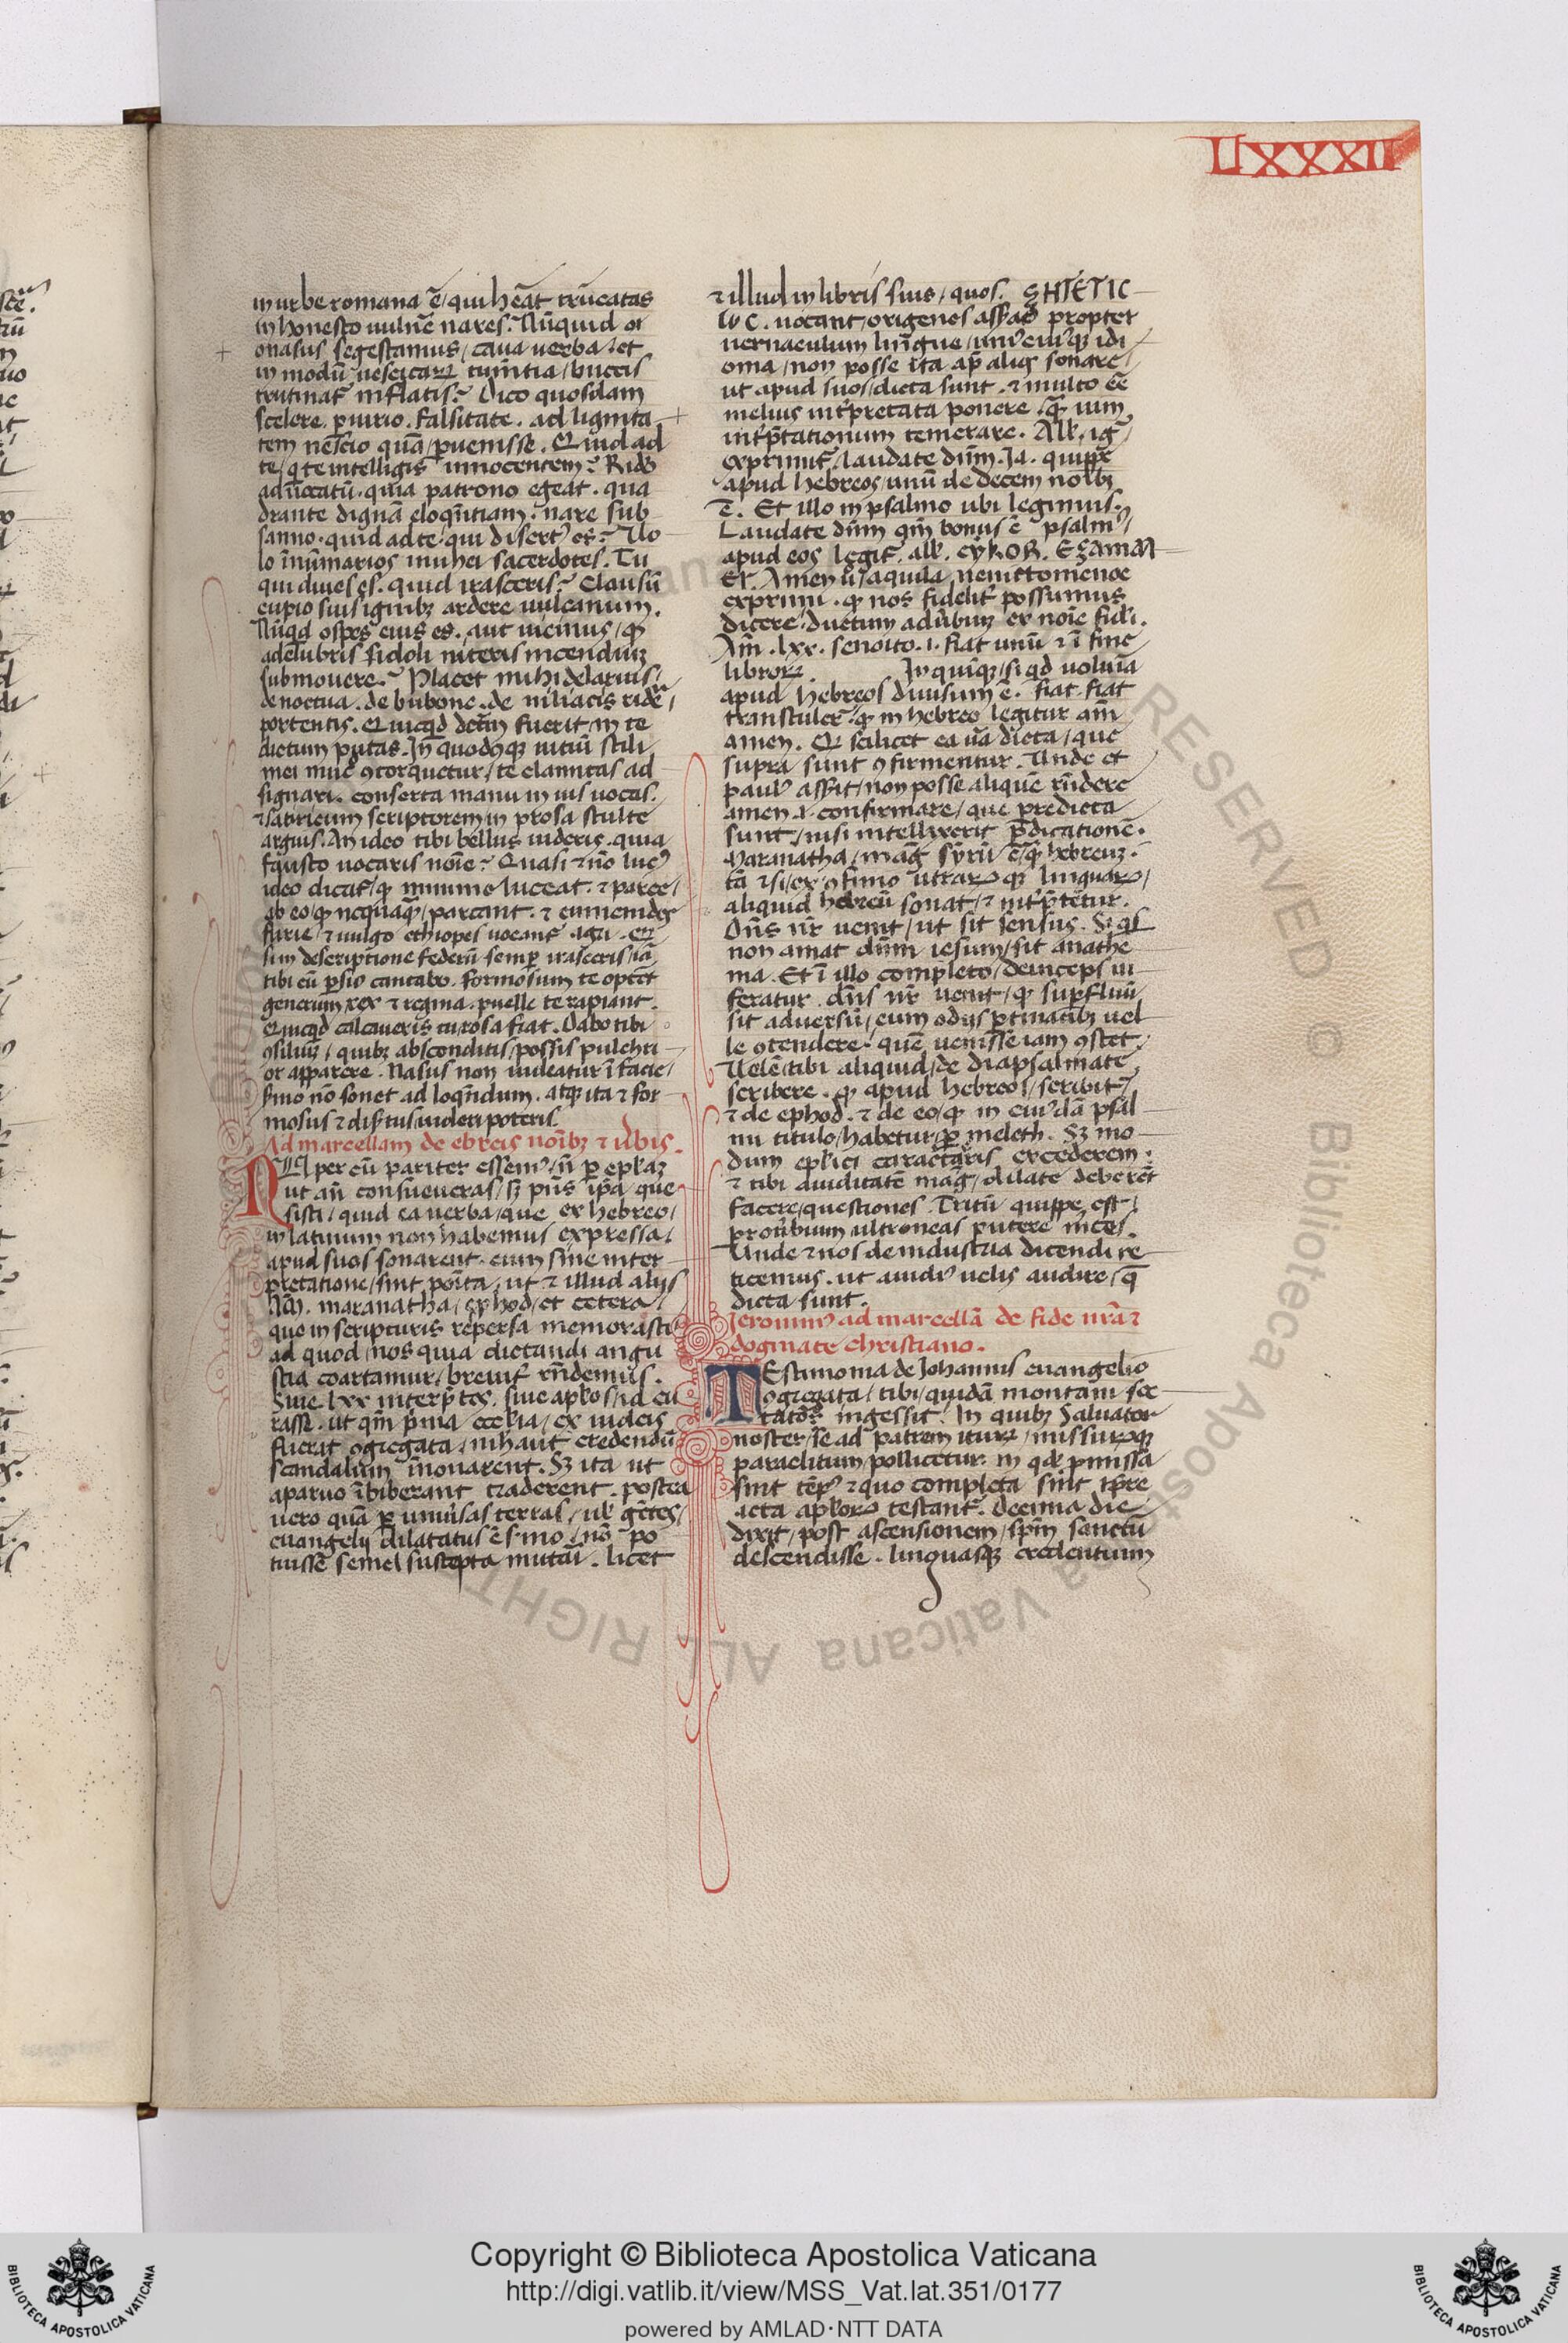 LXXXII
in urbe romana ē / qui hēat trūcatas
in honesto uulnē nares? Nūquid or
onasus segestanus / caua uerba / et
in modū uesicarꝝ tumētia / buccis
trutinat᷑ inflatis? Dico quosdam
scelere . piurio . falsitate . ad lignita
tem nescio quā / puenisse . Quid ad
te / q te intelligis innocentem? Rideo
aduocatū . quia patrono egeat . qua
drante dignā eloqūtiam . nare sub
sanno . quid ad te . qui disertꝰ es? Uo
lo inūmarios inuhei sacerdotes . Tu
qui diues es . quid irasceris? Clausū
cupio suis ignibꝫ ardere uulcanum .
Nūqd ospes eius es . aut uicinus / qͦ
a delubris fidoli niteris incendiuꝫ
submouere? Placet mihi de laruis /
de noctua . de bubone . de niliacis ridē /
portentis . Quicqd dcm̄ fuerit / in te
dictum putas . In quodcūqꝫ uitiū stili
mei muc̄ ꝯtorquetur / te clamitas ad
signari . conserta manu in ius uocas .
⁊ satiricum scriptorem in prosa stulte
arguis . An ideo tibi bellus uideris . quia
fausto uocaris noīe? Quasi ⁊ nō lucꝰ
ideo dicat᷑ / qͦ minime luceat . ⁊ parce /
ab eo / qͦ nequaq̄ / parcant . ⁊ eumenides
furie / ⁊ uulgo ethiopes uocant᷑ .
sin descriptione federū semꝑ irasceris / iā
tibi cū ꝑsio cantabo . formosum te optēt
generum rex ⁊ regina . puelle te rapiant .
Quicqd calcaueris tu rosa fiat . Dabo tibi
ꝯsiliuꝫ / quibꝫ absconditis / possis pulchri
or apparere . Nasus non uideatur ī facie /
sͥmo nō sonet ad loqn̄dum . atqꝫ ita ⁊ for
mosus ⁊ disertus / uideri poteris .
Ad marcellam de ebreis noībꝫ ⁊ uͥbis .
NUper cū pariter essemꝰ / ñ ꝑ eplaꝫ
ut an̄ consueueras / sꝫ pn̄s ipa / que
sisti / quid ea uerba / que ex hebreo /
in latinum non habemus expressa /
apud suos sonarent . cum sine inter
pretatione / sint posita / ut ⁊ illud aliis
Am̄ . maranatha / ephod / et cetera /
que in scripturis repersa memorasti
ad quod / nos quia dictandi angu
stia coartamur / breuit᷑ rn̄demus .
Siue lxx interp̄tes . siue aplos / id cu
rasse . ut qm̄ pͥma ecclia / ex iudeis
fuerat ꝯgregata / nihaut credendū
scandalum īnouarent . Sꝫ ita ut
a paruo ībiberant traderent . postea
uero quā ꝑ uniuͥsas terras / ul gētes /
euangelij dilatatus ē sͥmo / nō po
tuisse semel suscepta mutāi . licet
⁊ illud in libris suis / quos . ꞩΗΓΕΤΙC
ΙѠC . uocant / origenes assat᷑ propter
uernaculum lingue / uniꝰcuiꝰqꝫ idi
oma / non posse ita ap̄ alios sonare /
ut apud suos / dicta sunt . ⁊ multo ēē
melius int᷑pretata ponere . q̄ uim
int᷑p̄tationum temerare . All . ig᷑ /
exprimit᷑ / Laudate dūm . Ia . quippe
apud hebreos / unū de decem noībꝫ
ē . Et illo in psalmo ubi legimus .
Laudate dūm qm̄ bonus ē psalmꝰ /
apud eos legit᷑ . all . CΥΚΟΒ . ΕΖΑΜΑΝ
Et . Amen ū / aquila nemittomenoc
exprimi . qͦ nos fidelit᷑ possumus
dicere / ductum aduͥbiuꝫ ex noīe fidi .
Am̄ . lxx . senoito . i . fiat unū ⁊ ī fine
librorꝝ . In quinqꝫ / siqd uolūīa
apud hebreos diuisum ē . fiat . fiat
transtulere . qͦ in hebreo legitur am̄
amen . Qͦ scilicet ea uā dicta / que
supra sunt ꝯfirmentur . Unde et
paulꝰ assit᷑ / non posse aliquē rn̄dere
amen .i. confirmare / que predicta
sunt / nisi intellexerit p̄dicationē .
Maranatha / mag᷑ syrū ē / q̄ hebreuꝫ .
tā ⁊si / ex ꝯfinio utrarꝝqꝫ linguarꝝ /
aliquid hebreū sonat / ⁊ int᷑p̄tetur .
Dn̄s nr̄ uenit / ut sit sensus . Si qs
non amat dūm iesum / sit anathe
ma . Et ī illo completo / deinceps in
feratur . dn̄s nr̄ uenit / qͦ suꝑfluū
sit aduersū / eum odijs ꝑtinacibꝫ uel
le ꝯtendere . quē uenisse iam ꝯstet .
Uelē tibi aliquid / de diapsalmate
scribere . qͦ apud hebreos / scribit᷑ /
⁊ de ephod . ⁊ de eo / qͦ in cuiꝰdā psal
mi titulo / habetur / ꝓ meleth . Sꝫ mo
dum eplici caractaris excederem .
⁊ tibi auiditatē mag᷑ / dilate deberēt
facere / questiones . Tritū quippe est /
prouͥbium ultroneas putere mces .
Unde ⁊ nos de industria dicendi re
ticemus . ut auidiꝰ uelis audire / q̄
dicta sunt .
Ieronimꝰ ad marcellā de fide nr̄a ⁊
dogmate christiano .
TEstimonia de Johannis euangelio
ꝯgregata / tibi / quidā montani sec
tator ingessit . In quibꝫ Saluator
noster / se ad patrem iturꝫ / missurꝫqꝫ
paraclitum / pollicetur . in qd pͦmissa
sint tēpꝰ ⁊ quo completa sint tp̄re
acta aplorꝝ testant᷑ . Decima die
dixit / post ascensionem / spm̄ sanctū
descendisse . linguasqꝫ credentium
Copyright © Biblioteca Apostolica Vaticana
http://digi.vatlib.it/view/MSS_Vat.lat.351/0177
powered by AMLAD·NTT DATA